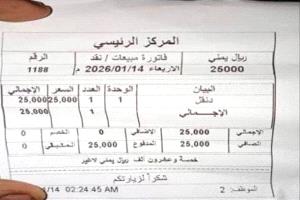 المركز الرئيسي
ريال يمني فاتورة مبيعات / نقد الرقم
25000 الاربعاء 2026/01/14 م 1188
البيان الوحدة العدد السعر الإجمالي
دنقل 1 1 25,000 25,000
الإجمـــالي 25,000
الإجمالي 25,000 الاضافي 0 الخصم 0
الصافي 25,000 المدفوع 25,000 المتبقي 0
خمسة وعشرون الف ريال يمني لاغير
شكراً لزيارتكم
الموظف: 2 1/14 02:24:45 AM